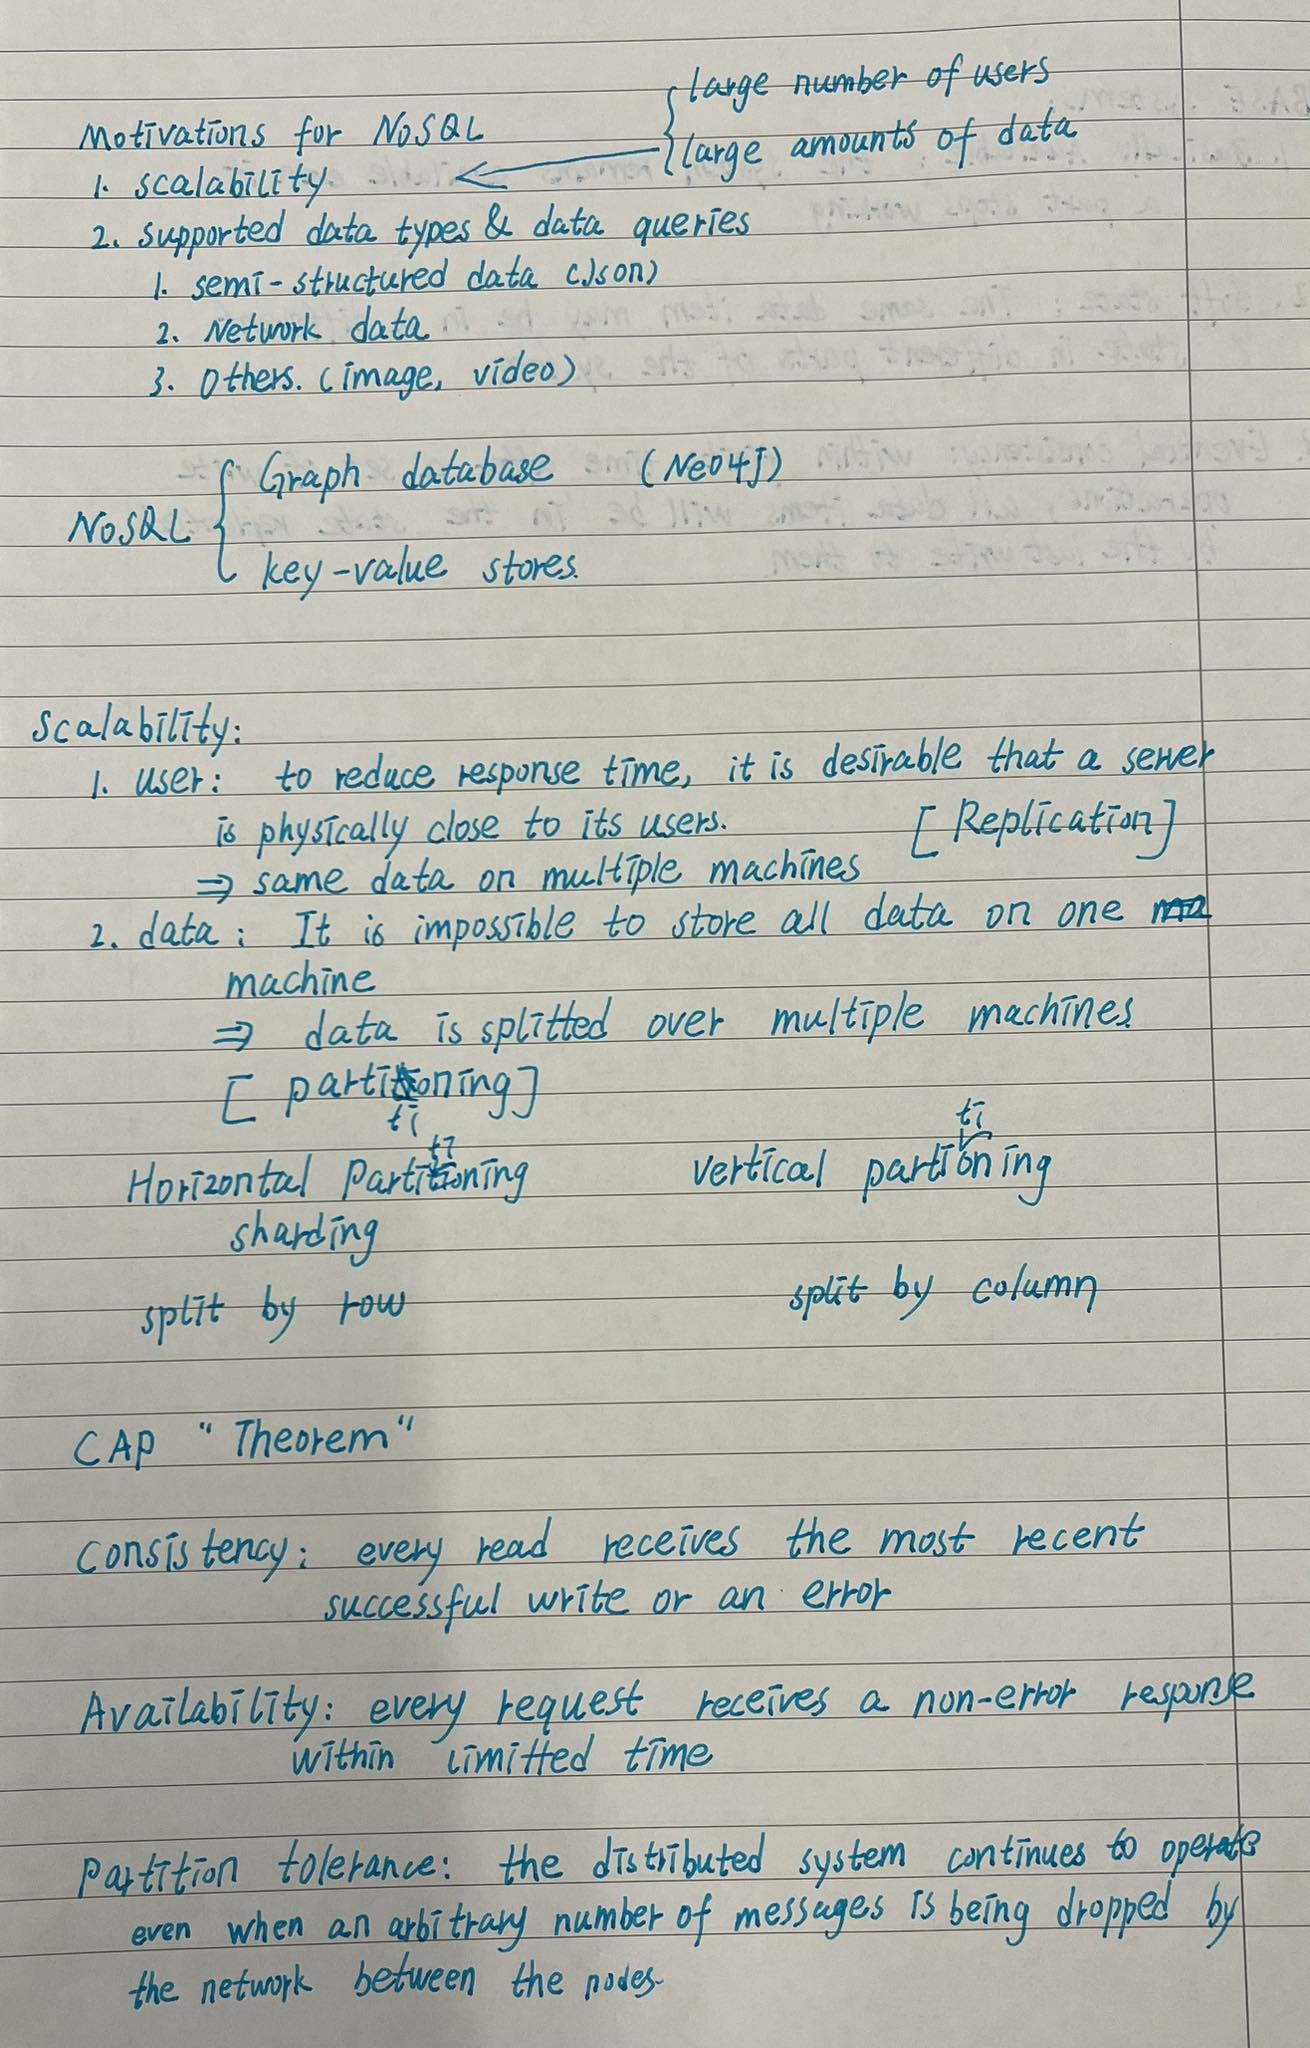 large number of users
Motivations for NoSQL
large amounts of data
1. scalability
2. supported data types & data queries
1. semi-structured data (Json)
2. Network data
3. Others. (image, video)
Graph database (Neo4j)
NoSQL
key-value stores.
Scalability:
1. user: to reduce response time, it is desirable that a server
is physically close to its users. [Replication]
⇒ same data on multiple machines
2. data: It is impossible to store all data on one ma
machine
⇒ data is splitted over multiple machines.
[partitioning]
ti
ti ti
Horizontal Partitioning vertical partioning
sharding
split by row split by column
CAP "Theorem"
Consistency: every read receives the most recent
successful write or an error
Availability: every request receives a non-error response
within limitted time
Partition tolerance: the distributed system continues to operate
even when an arbitrary number of messages is being dropped by
the network between the nodes.